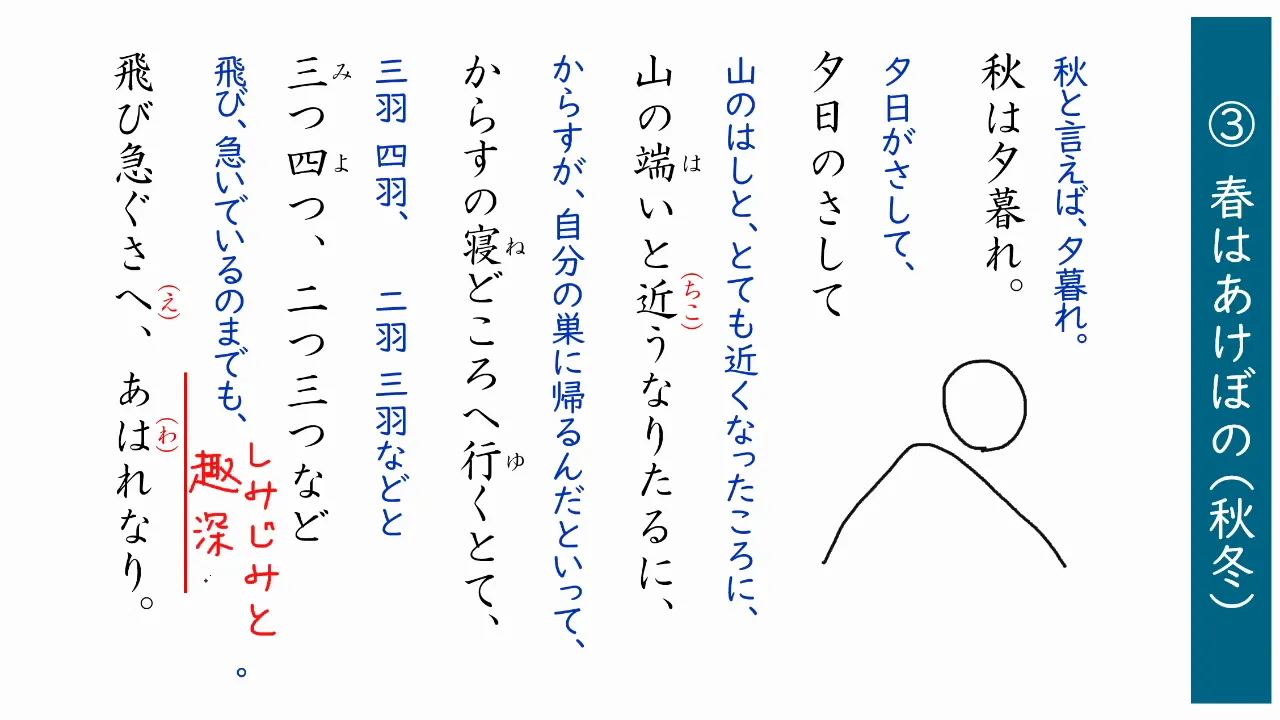 ③ 春はあけぼの(秋冬)
秋と言えば、夕暮れ。
秋は夕暮れ。
夕日がさして、
夕日のさして
山のはしと、とても近くなったころに、
は
(ちこ)
山の端いと近うなりたるに、
からすが、自分の巣に帰るんだといって、
ね
ゆ
からすの寝どころへ行くとて、
三羽 四羽、 二羽 三羽などと
み
よ
三つ四つ、二つ三つなど
飛び、急いでいるのまでも、
しみじみと
趣深
。
(え)
(わ)
飛び急ぐさへ、あはれなり。